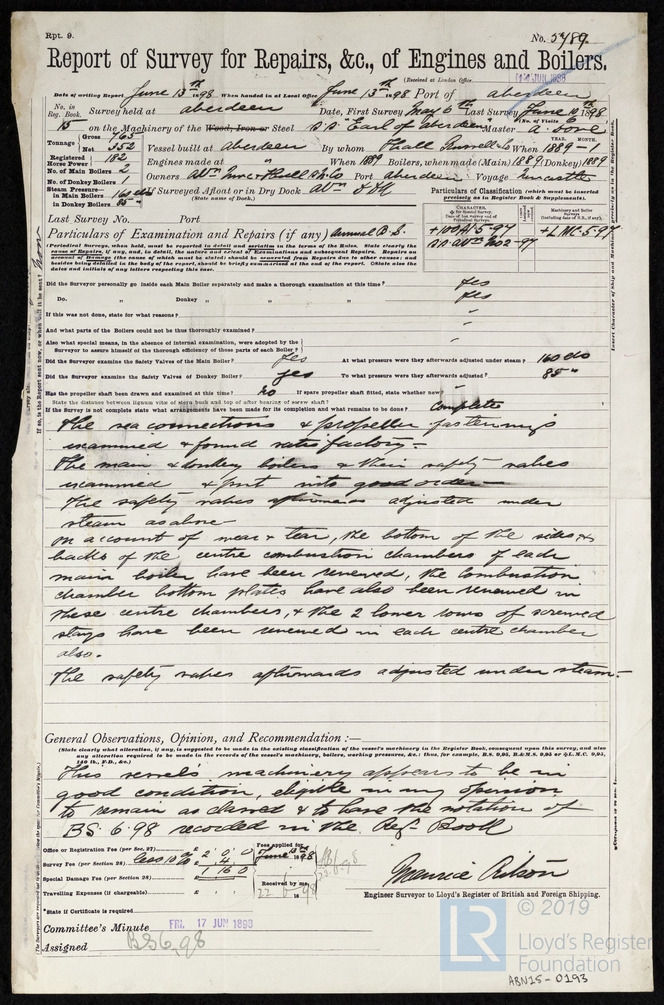 Rpt. 9.
No. 5789
Report of Survey for Repairs, &c., of Engines and Boilers.
(Received at London Office
JUN 1898
Date of writing Report June 13th 1898 When handed in at Local Office June 13th 1898 Port of aberdeen
No. in Reg. Book. Survey held at aberdeen Date, First Survey May 6th Last Survey June 10th 1898
(No. of Visits 6
15 on the Machinery of the Wood, Iron or Steel S.S. "Earl of Aberdeen" Master A. Dove
Tonnage Gross 763 Net 352 Vessel built at Aberdeen By whom Hall Russell & Co When 1889-1
YEAR. MONTH.
Registered Horse Power 182 Engines made at " When 1889 Boilers, when made (Main) 1889 (Donkey) 1889
No. of Main Boilers 2
No. of Donkey Boilers 1 Owners Port aberdeen Voyage
Steam Pressure in Main Boilers 160
in Donkey Boilers 85 If Surveyed Afloat or in Dry Dock
(State name of Dock.)
Particulars of Classification (which must be inserted precisely as in Register Book & Supplements).
Last Survey No. Port
Particulars of Examination and Repairs (if any) Annual B.S.
+100A1 5-97
+LMC 5-97
Did the Surveyor personally go inside each Main Boiler separately and make a thorough examination at this time? yes
Do. Donkey " " " " " yes
If this was not done, state for what reasons? -
And what parts of the Boilers could not be thus thoroughly examined? -
Also what special means, in the absence of internal examination, were adopted by the
Surveyor to assure himself of the thorough efficiency of those parts of each Boiler? -
Did the Surveyor examine the Safety Valves of the Main Boiler? yes At what pressure were they afterwards adjusted under steam? 160
Did the Surveyor examine the Safety Valves of Donkey Boiler? yes To what pressure were they afterwards adjusted? 85
Has the propeller shaft been drawn and examined at this time? no If spare propeller shaft fitted, state whether new? -
State the distance between lignum vitæ of stern bush and top of after bearing of screw shaft?
If the Survey is not complete state what arrangements have been made for its completion and what remains to be done? Complete
The sea connections & propeller fastenings
examined & found satisfactory.-
The main & donkey boilers & their safety valves
examined & put into good order-
The safety valves afterwards adjusted under
steam as above
On account of wear & tear, the bottom of the sides &
backs of the centre combustion chambers of each
main boiler have been renewed, the combustion
chamber bottom plates have also been renewed in
these centre chambers, & the 2 lower rows of screwed
stays have been renewed in each centre chamber
also.
The safety valves afterwards adjusted under steam.-
General Observations, Opinion, and Recommendation :—
(State clearly what alteration, if any, is suggested to be made in the existing classification of the vessel's machinery in the Register Book, consequent upon this survey, and also
any alteration required to be made in the records of the vessel's machinery, boilers, working pressures, &c.: thus, for example, B.S. 9,95, B.&M.S. 9,95 or +L.M.C. 9,95,
140 lb., F.D., &c.)
This vessel's machinery appears to be in
good condition, eligible in my opinion
to remain as classed & to have the notation of
BS 6.98 recorded in the Reg. Book
Office or Registration Fee (per Sec. 27)
Survey Fee (per Section 28) less 10% £2 0 0
4
Special Damage Fee (per Section 28) 1 16 0
Travelling Expenses (if chargeable) £
Fees applied for June 13th 1898
Received by me, 22-6-98
Maurice Ritson
Engineer Surveyor to Lloyd's Register of British and Foreign Shipping.
*State if Certificate is required
Committee's Minute FRI. 17 JUN 1898
Assigned BS 6,98
LR © 2019
Lloyd's Register
Foundation
ABN25-0193